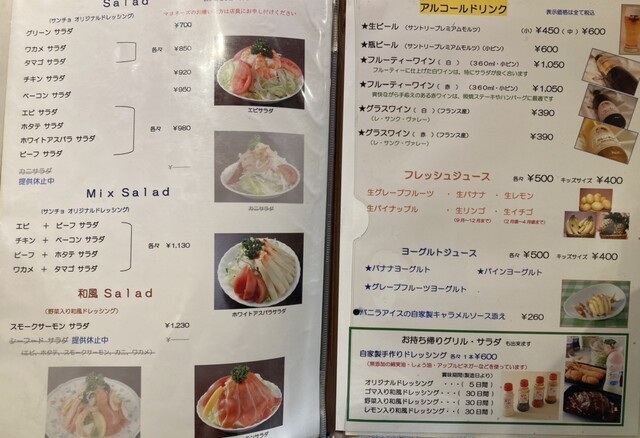 Salad
＊チーズのお嫌いな方は店員にお申し付けください
(サンチョ オリジナルドレッシング)
グリーン サラダ ¥700
ワカメ サラダ
タマゴ サラダ
各々 ¥850
チキン サラダ ¥920
ベーコン サラダ ¥950
エビ サラダ
ホタテ サラダ
ホワイトアスパラ サラダ
ビーフ サラダ
各々 ¥980
カニサラダ ¥
提供休止中
エビサラダ
カニサラダ
ホワイトアスパラサラダ
Mix Salad
(サンチョ オリジナルドレッシング)
エビ ＋ ビーフ サラダ
チキン ＋ ベーコン サラダ
ビーフ ＋ ホタテ サラダ
ワカメ ＋ タマゴ サラダ
各々 ¥1,130
和風 Salad
(野菜入り和風ドレッシング)
スモークサーモン サラダ ¥1,230
シーフード サラダ 提供休止中 ¥
(エビ、ホタテ、スモークサーモン、カニ、ワカメ)
スモークサーモンサラダ
アルコールドリンク
表示価格は全て税込
★生ビール (サントリープレミアムモルツ) (小) ¥450 (中) ¥600
★瓶ビール (サントリープレミアムモルツ) (小ビン) ¥600
★フルーティーワイン (白) (360ml・小ビン) ¥1,050
フルーティーに仕上げた白ワインは、特にサラダが良く合います
★フルーティーワイン (赤) (360ml・小ビン) ¥1,050
爽快ながら手応えのある赤ワインは、焼物ステーキやハンバーグに最適です
★グラスワイン (白) (フランス産) ¥390
(レ・サンク・ヴァレー)
★グラスワイン (赤) (フランス産) ¥390
(レ・サンク・ヴァレー)
フレッシュジュース 各々 ¥500 キッズサイズ ¥400
生グレープフルーツ ・ 生バナナ ・ 生レモン
生パイナップル ・ 生リンゴ ・ 生イチゴ
ヨーグルトジュース 各々 ¥500 キッズサイズ ¥400
★バナナヨーグルト ★パインヨーグルト
★グレープフルーツヨーグルト
●バニラアイスの自家製キャラメルソース添え ¥260
お持ち帰りグリル・サラダ も出来ます
自家製手作りドレッシング 各々 1本 ¥600
(無添加の綿実油・しょう油・アップルビネガーなどを使っています)
賞味期間(製造日より)
オリジナルドレッシング ・・・( 5日間 )
ゴマ入り和風ドレッシング ・・・( 30日間 )
野菜入り和風ドレッシング ・・・( 30日間 )
レモン入り和風ドレッシング ・・・( 30日間 )